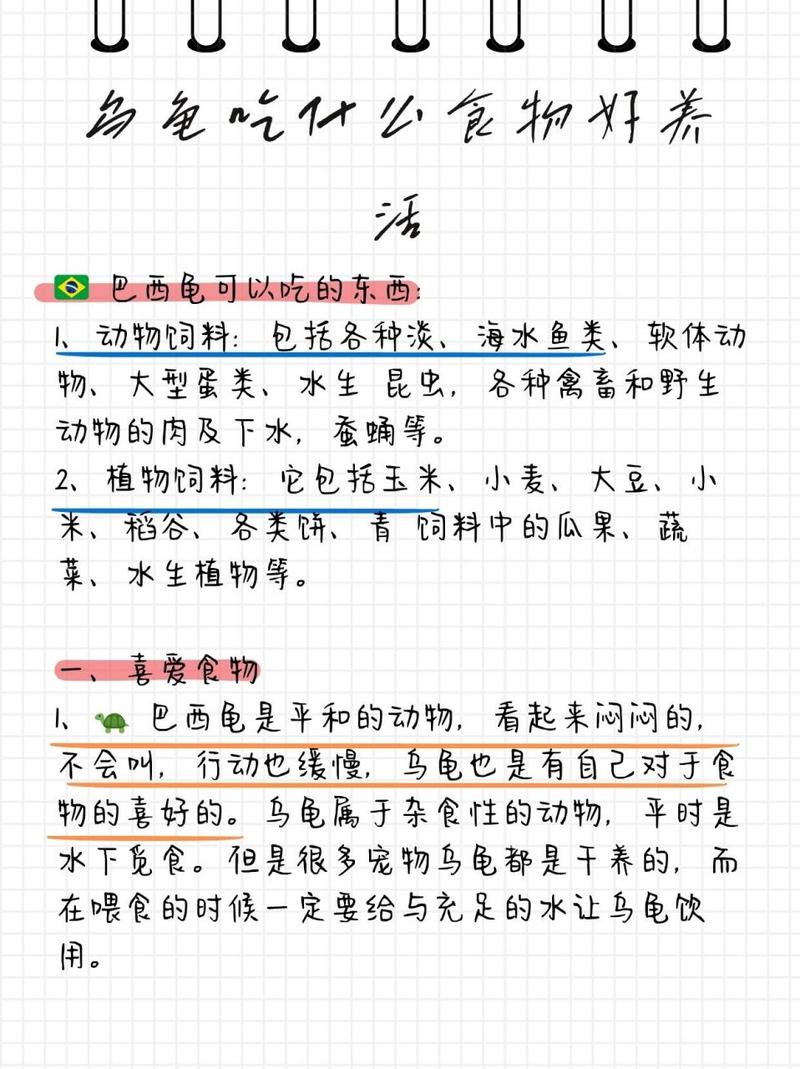 乌龟吃什么食物好养
活
🇧🇷 巴西龟可以吃的东西:
1、动物饲料: 包括各种淡、海水鱼类、软体动
物、大型蛋类、水生 昆虫, 各种禽畜和野生
动物的肉及下水, 蚕蛹等。
2、植物饲料: 它包括玉米、小麦、大豆、小
米、稻谷、各类饼、青 饲料中的瓜果、蔬
菜、水生植物等。
一、喜爱食物
1、🐢 巴西龟是平和的动物, 看起来闷闷的,
不会叫, 行动也缓慢, 乌龟也是有自己对于食
物的喜好的。乌龟属于杂食性的动物, 平时是
水下觅食。但是很多宠物乌龟都是干养的, 而
在喂食的时候一定要给与充足的水让乌龟饮
用。